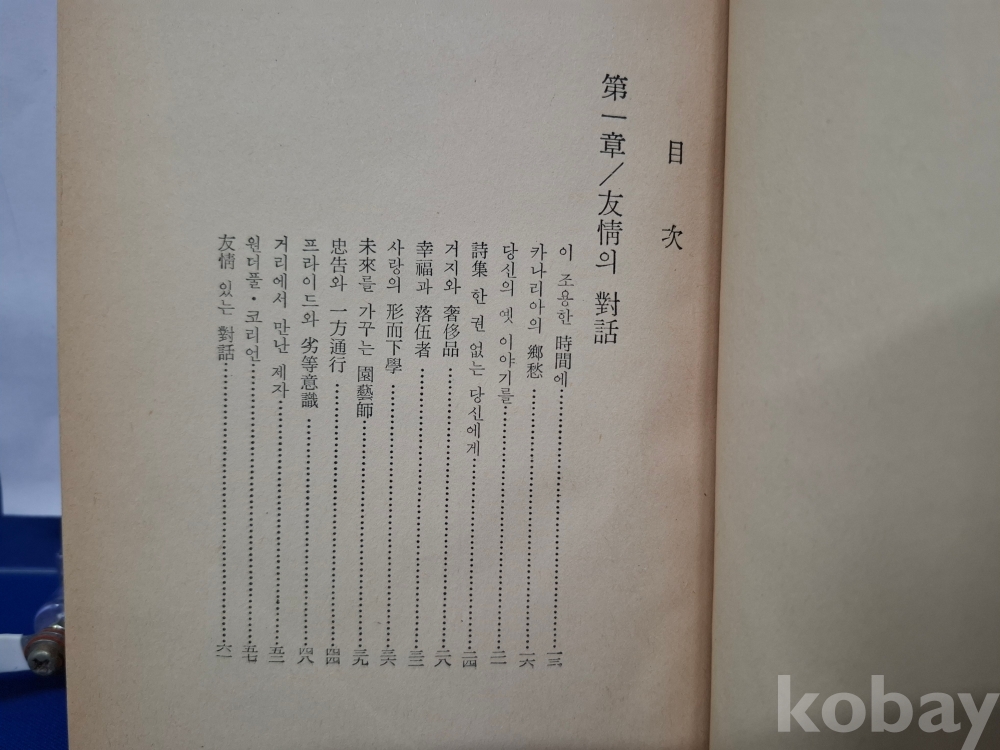 目次
第一章／友情의 對話
이 조용한 時間에……一三
카나리아의 鄕愁……一六
당신의 옛 이야기를……二一
詩集 한 권 없는 당신에게……二四
거지와 奢侈品……二八
幸福과 落伍者……三三
사랑의 形而下學……三六
未來를 가꾸는 園藝師……三九
忠告와 一方通行……四四
프라이드와 劣等意識……四八
거리에서 만난 제자……五三
원더풀·코리언……五七
友情 있는 對話……六一
kobay